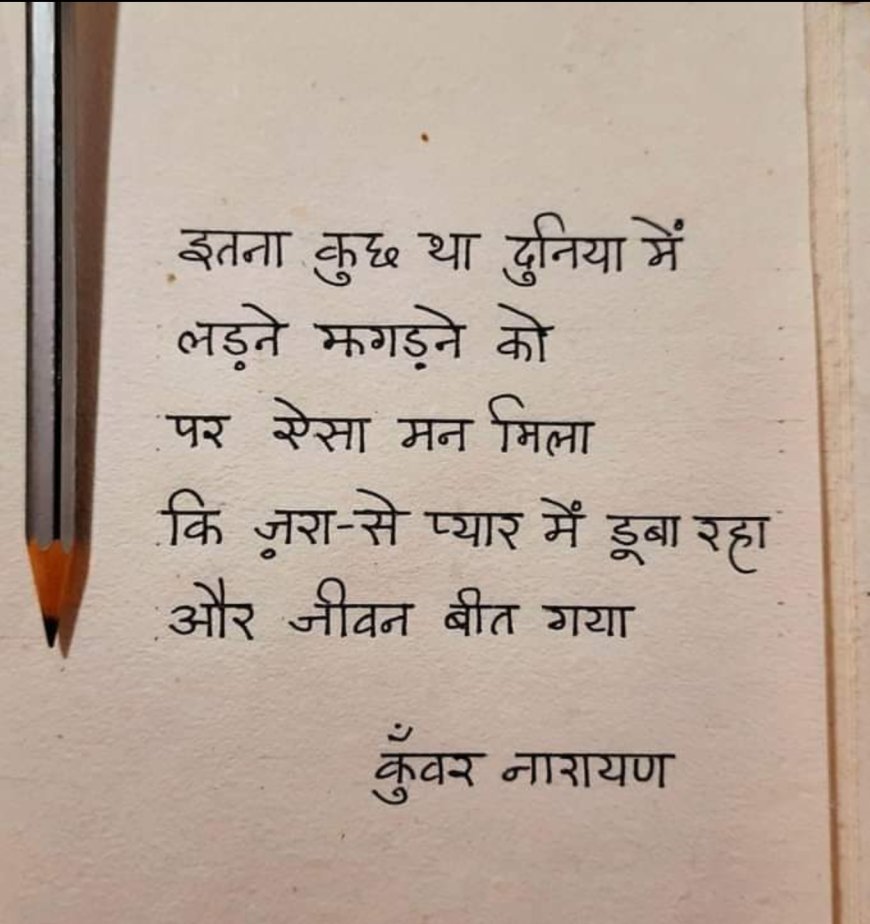 इतना कुछ था दुनिया में
लड़ने झगड़ने को
पर ऐसा मन मिला
कि ज़रा-से प्यार में डूबा रहा
और जीवन बीत गया
कुँवर नारायण